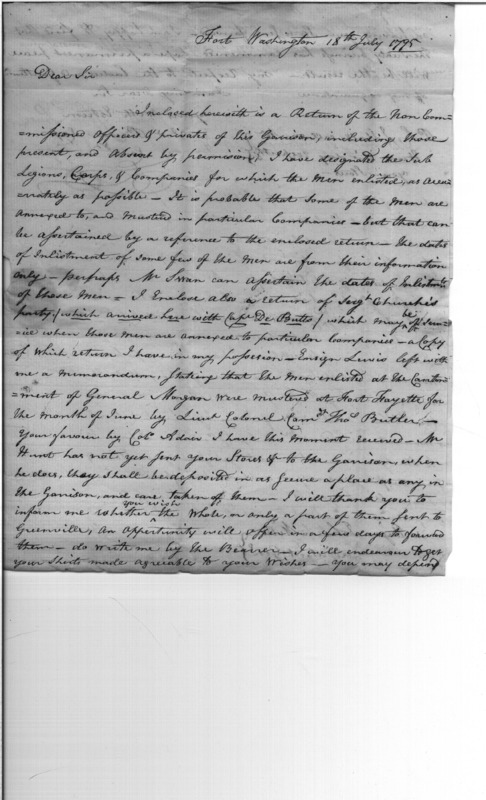 Fort Washington 18th July 1795
Dear Sir
Inclosed herewith is a Return of the Non Com=
=missioned Officers & privates of this Garrison, including those
present, and Absent by permission, I have designated the Sub
Legions, Corps, & Companies for which the Men enlisted, as accu=
=rately as possible — It is probable that some of the Men are
annexed to, and Mustered in particular Companies — but that can
be assertained by a reference to the enclosed return — the dates
of Enlistment of some few of the Men are from their information
only — perhaps Mr Swan can assertain the dates of Enlistmts
of those Men = I Enclose also a return of Sergt Church's
party, (which arrived here with Capt De Butts) which may be
=ive when those men are annexed to particular Companies — a Copy
of which return I have in my possession — Ensign Lewis left with
me a Memorandum, stating that the Men enlisted at the Canton=
=ment of General Morgan were mustered at Fort Fayette for
the Month of June by Lieut Colonel Comdt Thos Butler —
Your favour by Colo Adair I have this Moment received — Mr
Hunt has not yet sent your Stores & to the Garrison, when
he does, they shall be deposited in as secure a place as any in
the Garrison, and care taken of them — I will thank you to
inform me whether you wish the whole, or only a part of them sent to
Greenville, An Oppertunity will offer in a few days to forward
them — do write me by the Bearer — I will endeavour to get
your Shirts made agreeable to your Wishes — you may depend